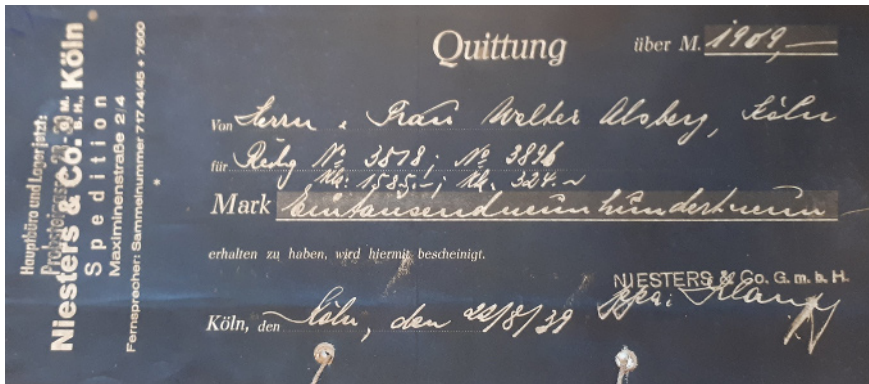 Hauptbüro und Lager jetzt:
Niesters & Co. G. m. b. H., Köln
Spedition
Maximinenstraße 2/4
Fernsprecher: Sammelnummer 717 44/45 + 7600
Quittung über M. 1909,—
Von Herrn & Frau Walter Alsberg, Köln
für Rechg No 3818; No 3896
RM. 1585.–; RM. 324.–
Mark Eintausendneunhundertneun
erhalten zu haben, wird hiermit bescheinigt.
NIESTERS & Co. G. m. b. H.
Köln, den Köln, den 22/8/39 ppa: